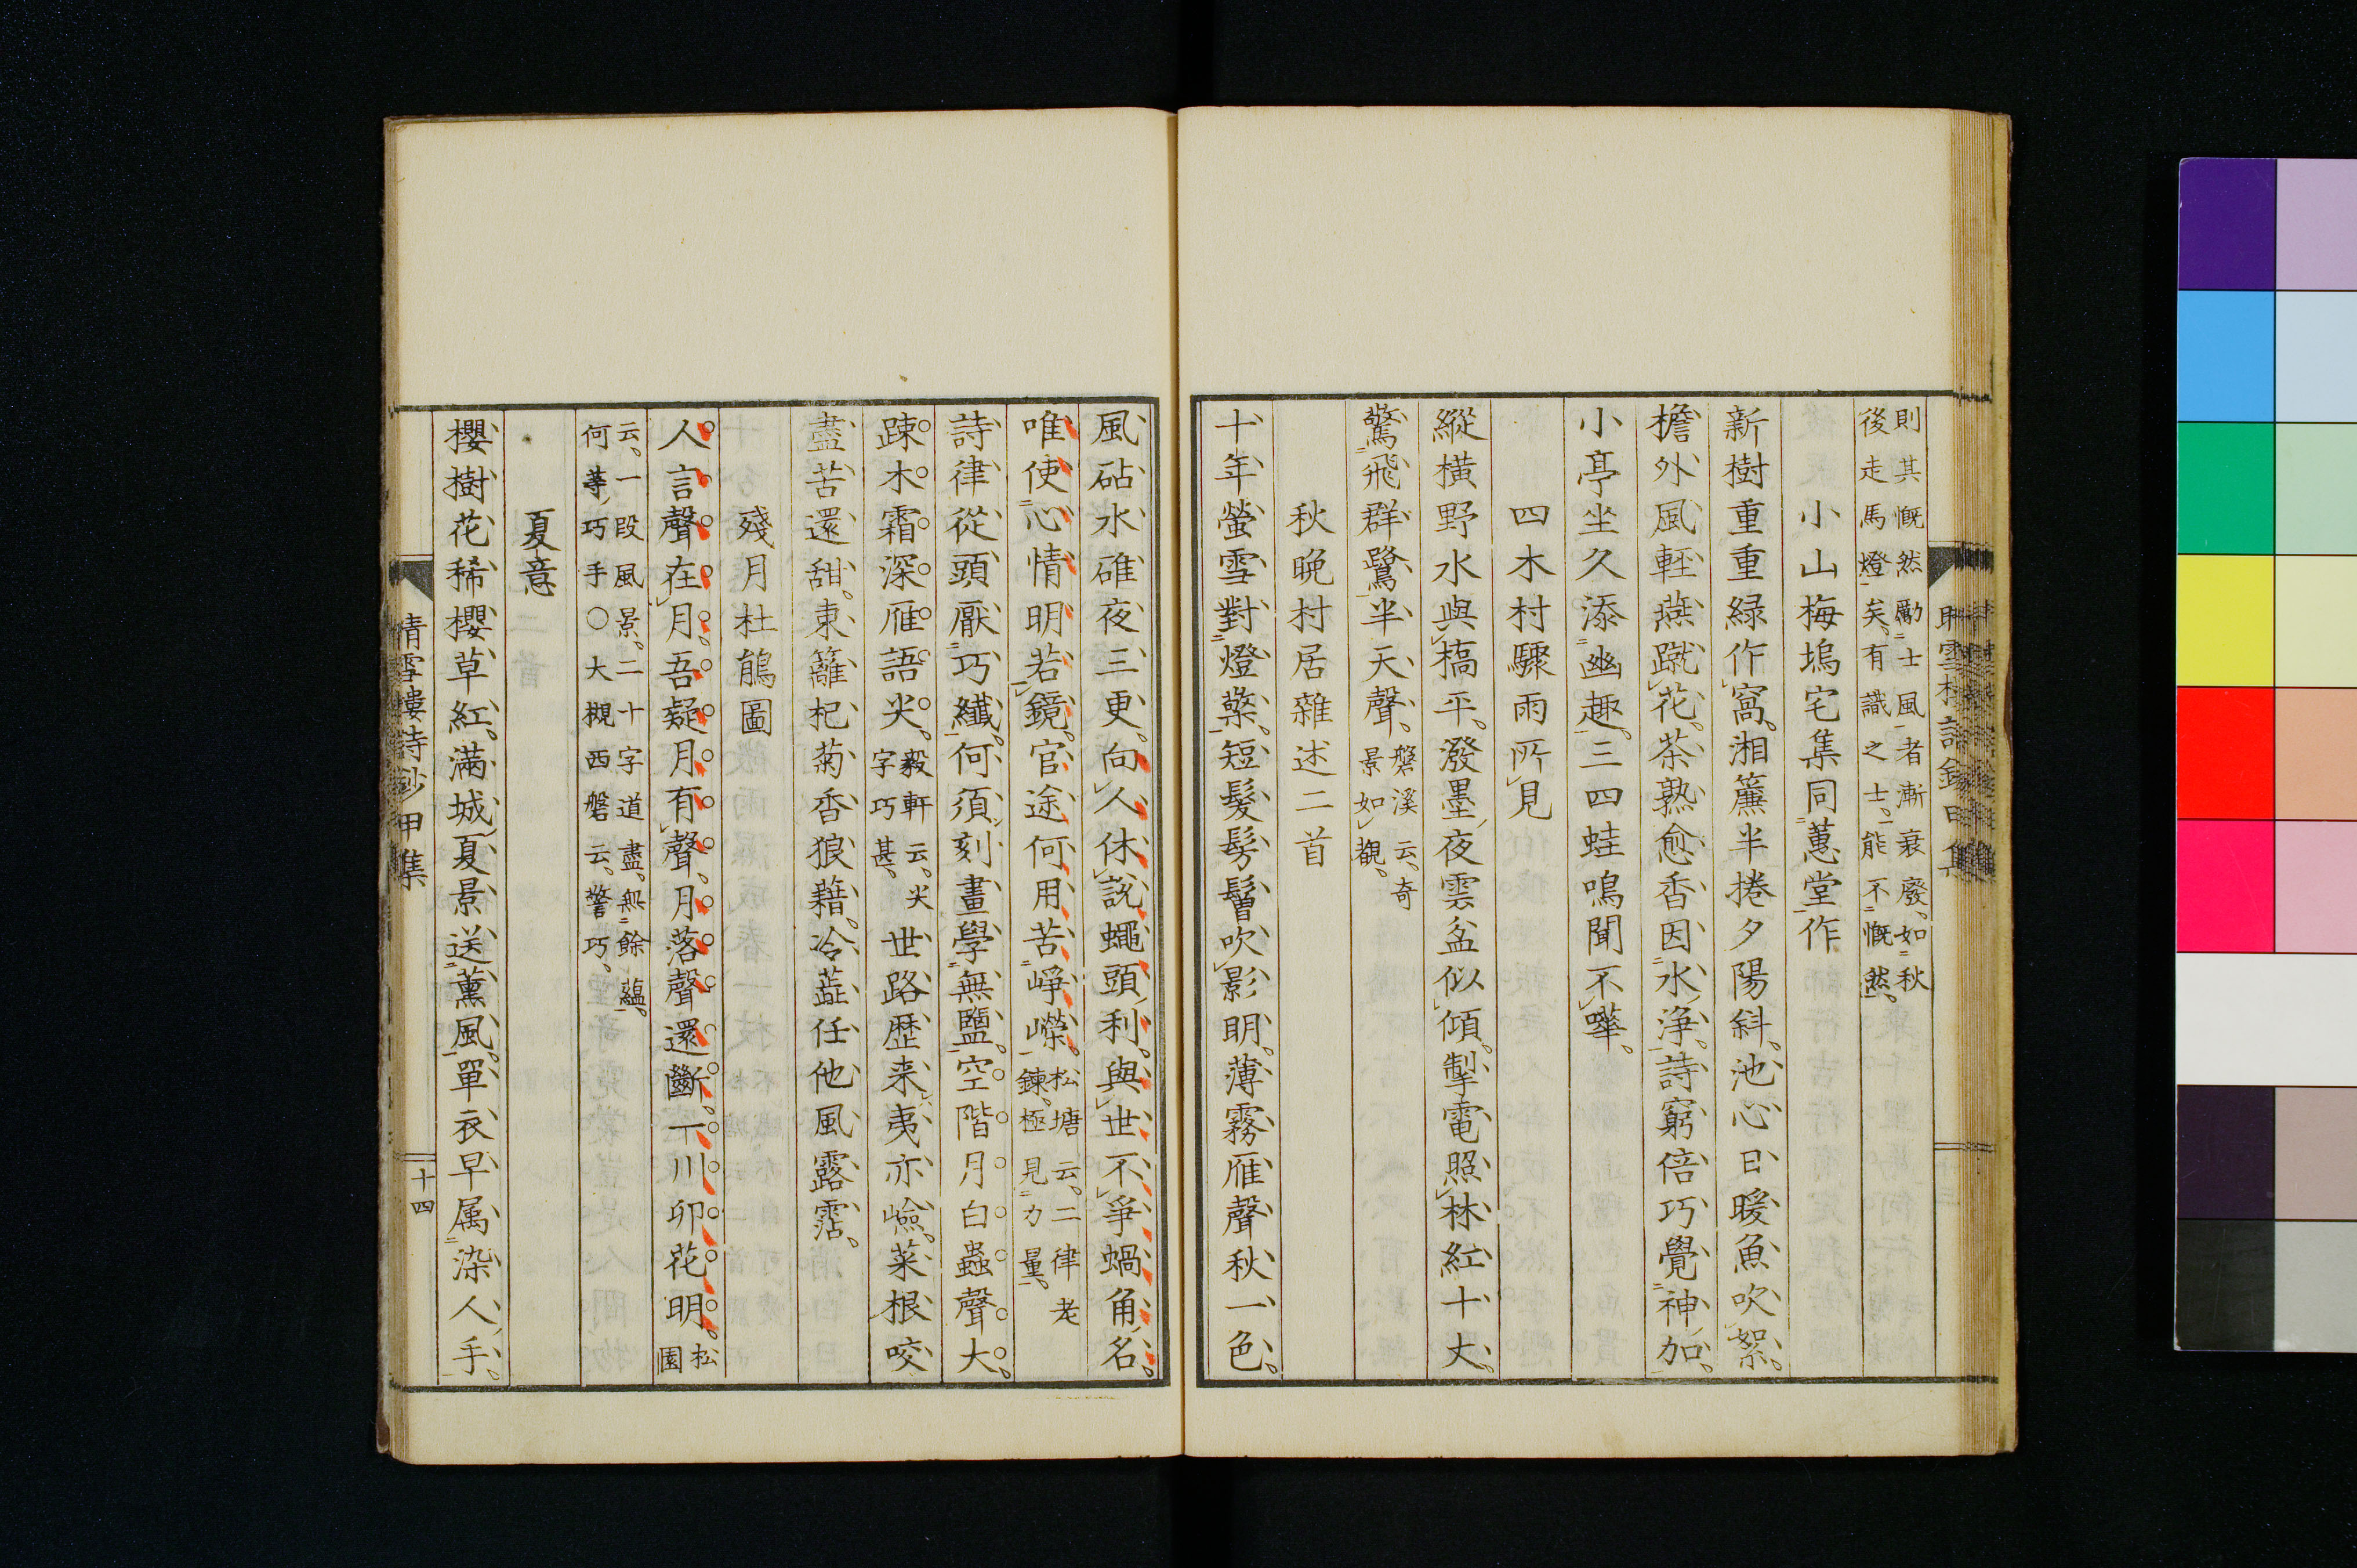 則其慨然勵士風者漸衰廢、如秋
後走馬燈矣、有識之士、能不慨然。
小山梅塢宅集同蕙堂作
新樹重重緑作窩。湘簾半捲夕陽斜。池心日暖魚吹絮。
檐外風輕燕蹴花。茶熟愈香因水淨。詩窮倍巧覺神加。
小亭坐久添幽趣。三四蛙鳴聞不譁。
四木村驟雨所見
縱横野水與槁平。潑墨夜雲盆似傾。掣電照林紅十丈。
驚飛群鷺半天聲。
磐溪云、奇
景如覩。
秋晩村居雜述二首
十年螢雪對燈檠。短髪鬅鬙吹影明。薄霧雁聲秋一色。
風砧水碓夜三更。向人休説蠅頭利。與世不爭蝸角名。
唯使心情明若鏡。官途何用苦崢嶸。
松塘云、二律老
鍊。極見力量。
詩律從頭厭巧纖。何須刻畫學無鹽。空階月白蟲聲大。
踈木霜深雁語尖。
毅軒云、尖
字巧甚。
世路歴来夷亦嶮。菜根咬
盡苦還甜。東籬杞菊香狼藉。冷蓝任他風露霑。
殘月杜鵑圖
人言聲在月。吾疑月有聲。月落聲還斷。一川卯花明。
松
園
云、一段風景、二十字道盡、無餘蘊。
何等巧手〇大槻西磐云、警巧、
夏意
櫻樹花稀櫻草紅。滿城夏景送薰風。單衣早属染人手。
晴雪樓詩鈔甲集
十四